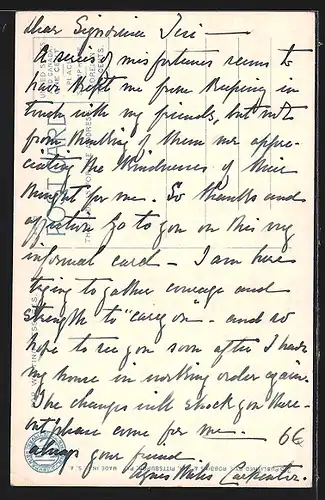 Dear Signorina Tini —
A series of misfortunes seems to
have kept me from keeping in
touch with my friends, but not
from thinking of them nor appre-
ciating the kindnesses of their
thought for me. So thanks and
affection go to you on this my
informal card — I am here
trying to gather courage and
strength to "carry on" — and so
hope to see you soon after I have
my house in working order again.
The changes will shock you there-
but please come for me — 66
always your friend
Agnes Carpenter.
POST CARD
MADE IN U.S.A.